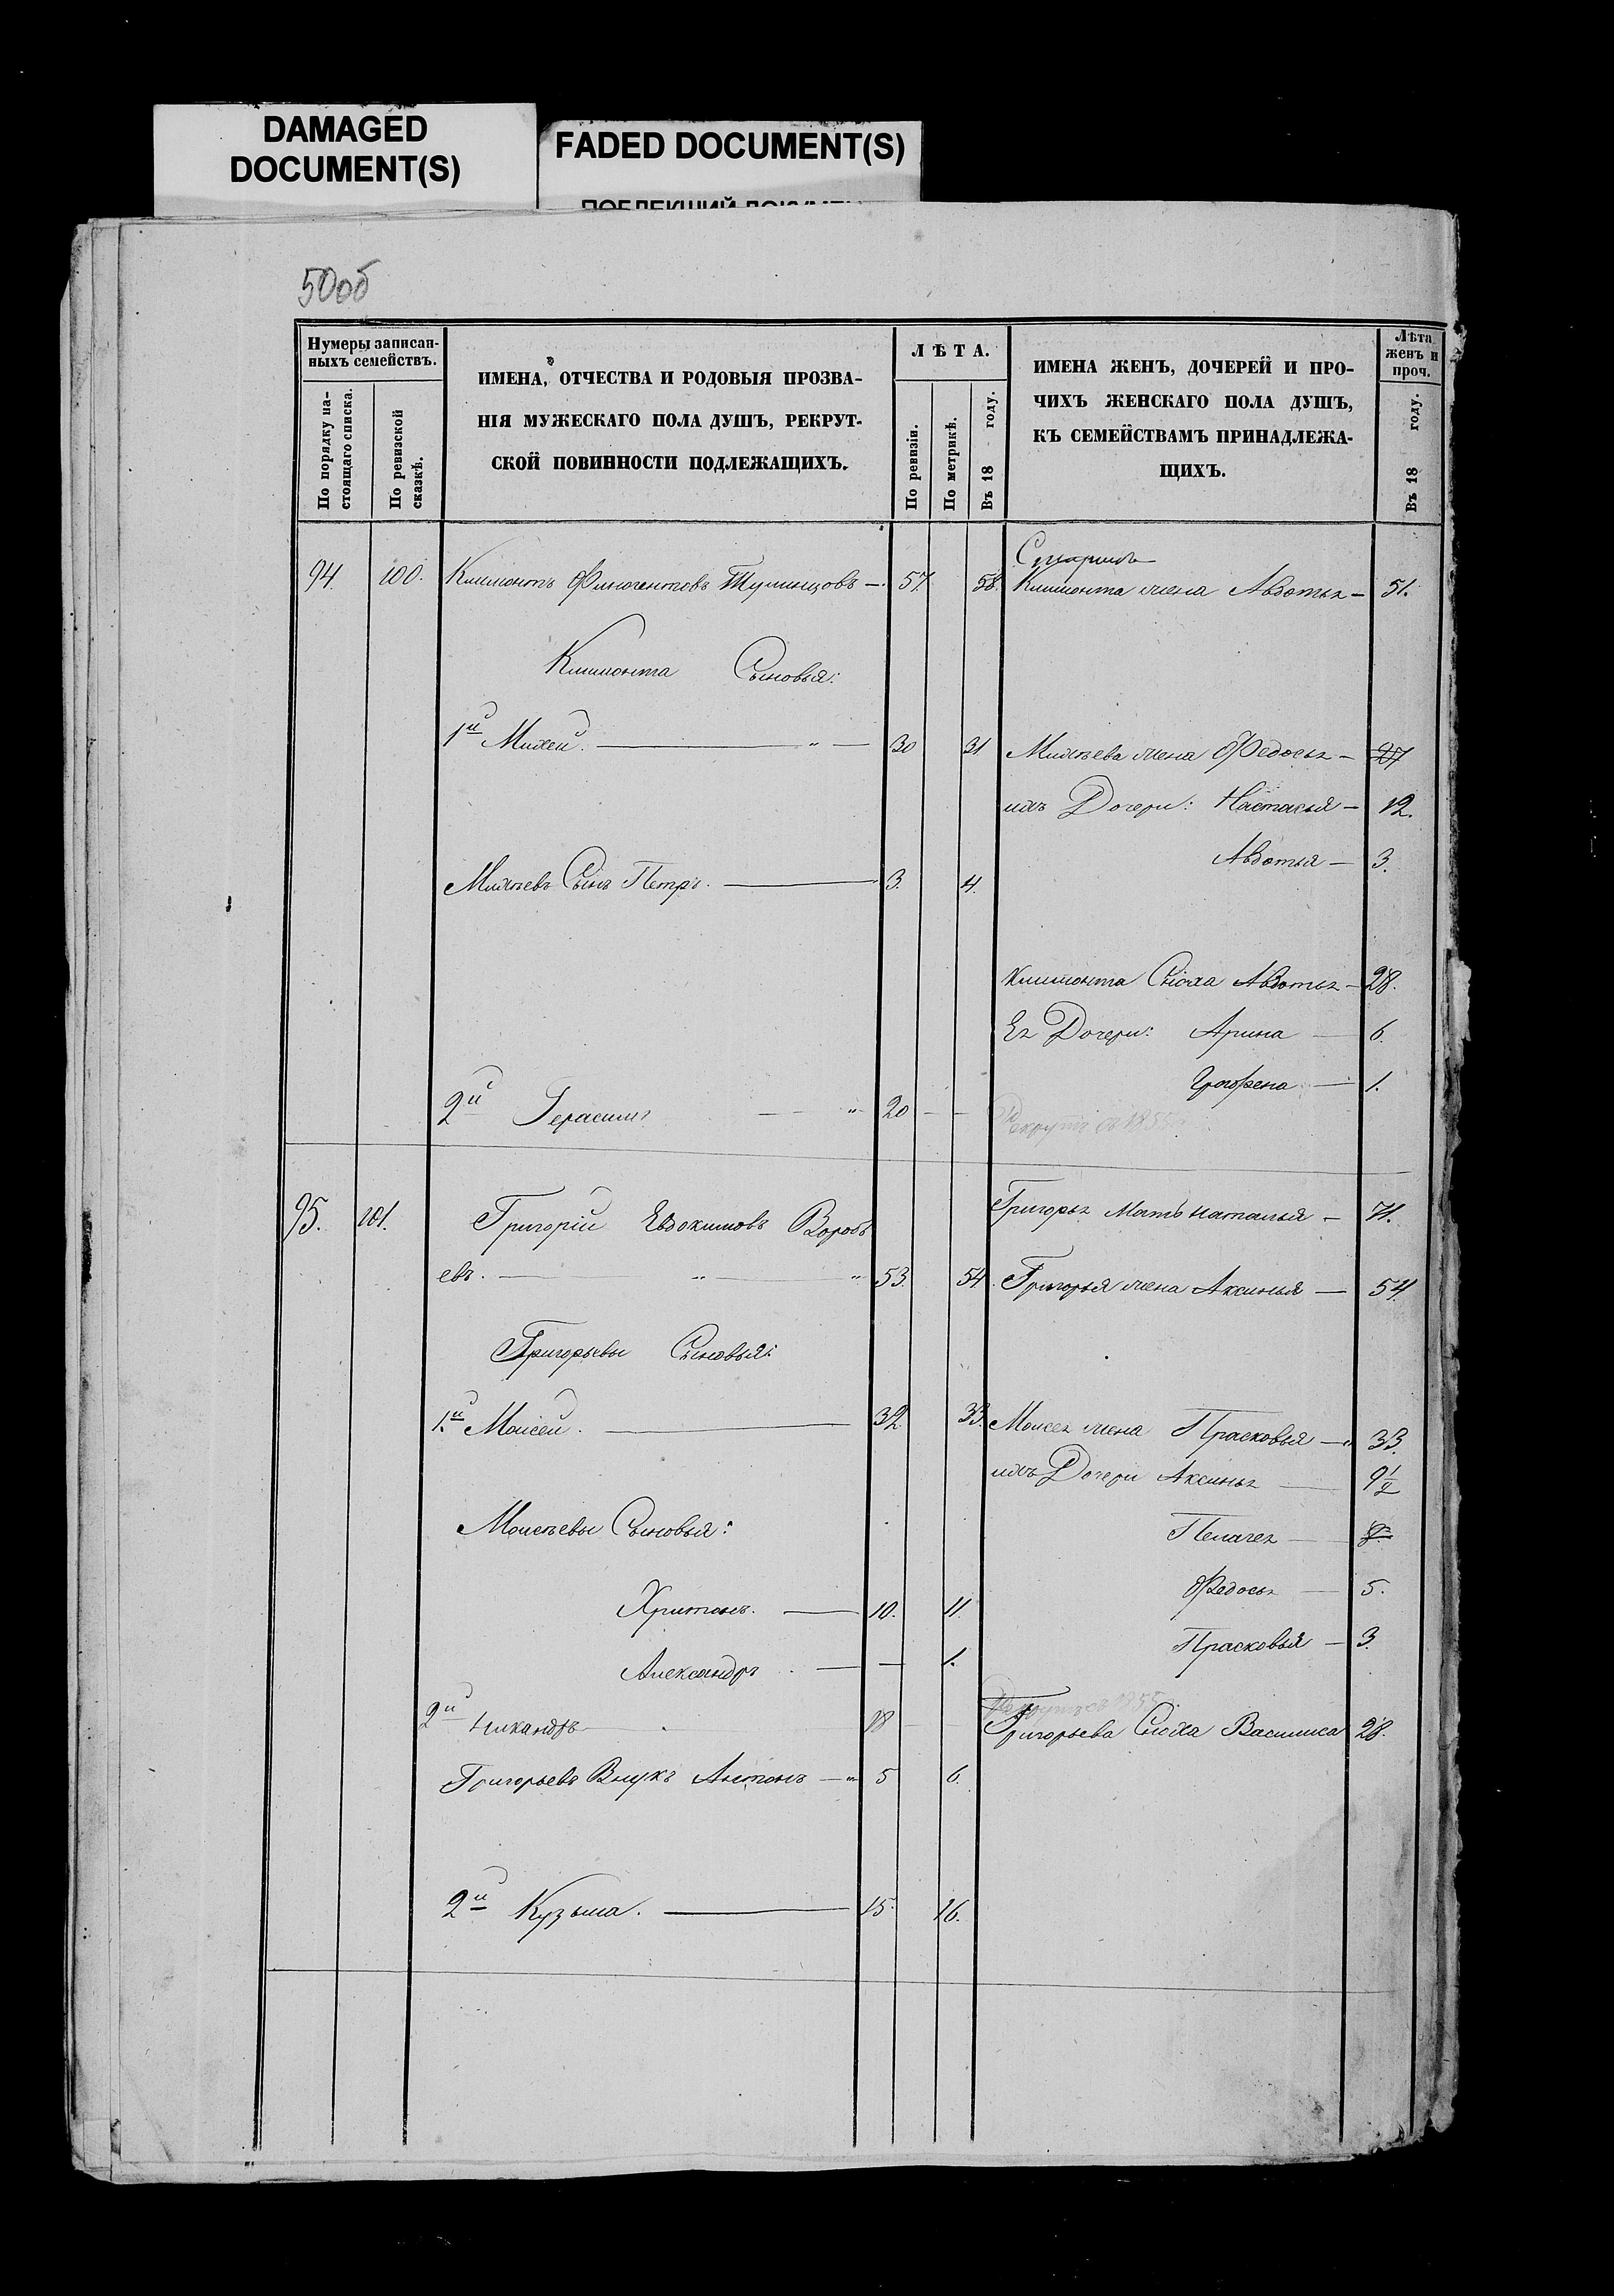 DAMAGED
DOCUMENT(S)
FADED DOCUMENT(S)
50об
Нумеры записан-
ныхъ семействъ.
По порядку на-
стоящаго списка.
По ревизской
сказкѣ.
ИМЕНА, ОТЧЕСТВА И РОДОВЫЯ ПРОЗВА-
НІЯ МУЖЕСКАГО ПОЛА ДУШЪ, РЕКРУТ-
СКОЙ ПОВИННОСТИ ПОДЛЕЖАЩИХЪ.
ЛѢТА.
По ревизіи.
По метрикѣ.
Въ 18 году.
ИМЕНА ЖЕНЪ, ДОЧЕРЕЙ И ПРО-
ЧИХЪ ЖЕНСКАГО ПОЛА ДУШЪ,
КЪ СЕМЕЙСТВАМЪ ПРИНАДЛЕЖА-
ЩИХЪ.
Лѣта
женъ и
проч.
Въ 18 году.
94. 100. Климонтъ 57. 58. Климонта жена Авдотья — 51.
Климонта Сыновья:
1й Михей. — " — 30 31 Михѣева жена Федосья — 27
ихъ Дочери: Настасья — 12.
Авдотья — 3.
Михѣевъ Сынъ Петръ. — 3. 4.
Климонта Сноха Авдотья — 28.
Ея Дочери: Арина — 6.
— 1.
2й Герасимъ — " — 20 — — Рекрутъ съ 1855
95. 101. Григорій Евдокимовъ Воробь
Григорья Мать Наталья — 71.
евъ. — " — " 53. 54. Григорья жена Аксинья — 54.
Григорьевы Сыновья:
1.й Моисей. — 32. 33. Моисея жена Прасковья — " 33.
ихъ Дочери Аксинья — 9 1/2
Моисѣевы Сыновья:
Пелагея — 8.
Федосья — 5.
Харитонъ. — 10. 11.
Прасковья — 3.
Александръ. — — 1.
Рекрутъ съ 1855
2й Никандръ — 18 Григорьева Сноха Василиса 28.
Григорьевъ Внукъ Антонъ — " 5 6.
2й Кузьма. — 15. 16.